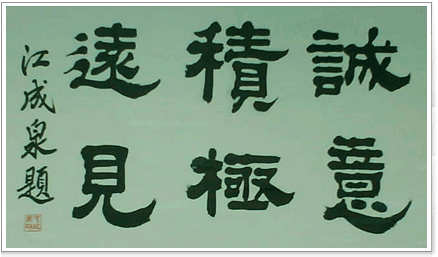 誠意
積極
遠見
江成泉題